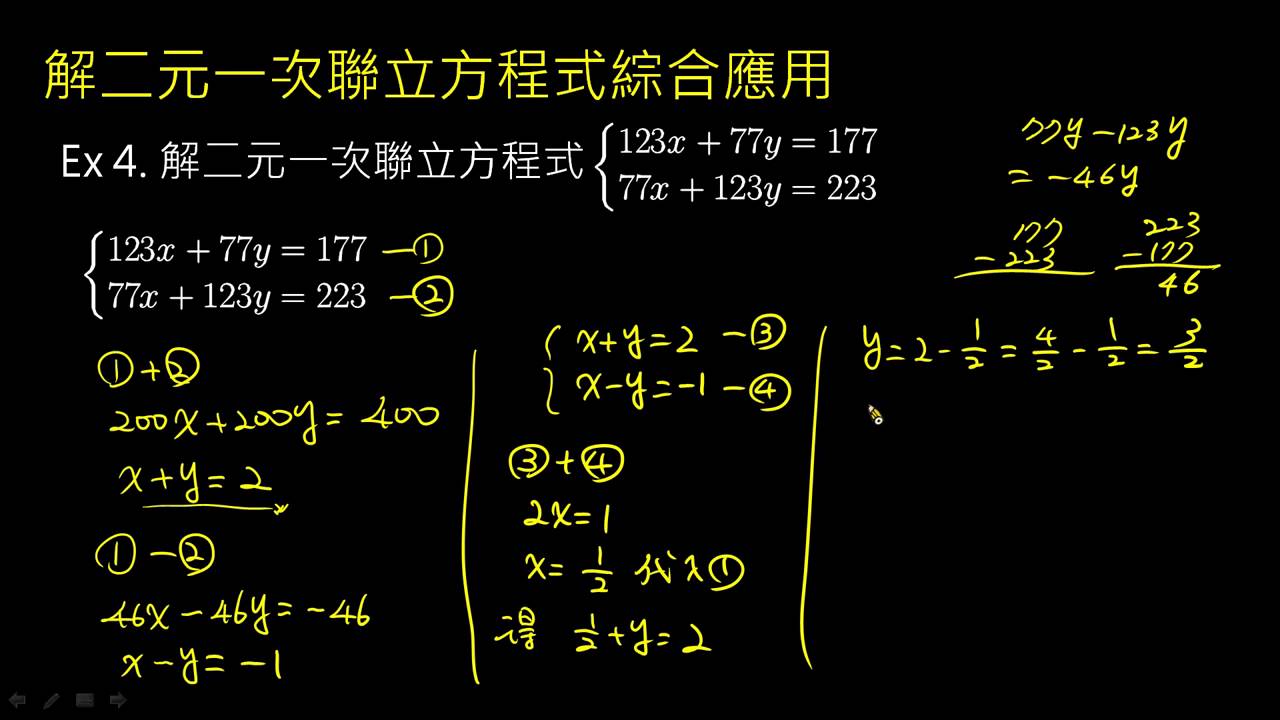 解二元一次聯立方程式綜合應用
Ex 4. 解二元一次聯立方程式 { 123x + 77y = 177
77x + 123y = 223
{ 123x + 77y = 177 —①
77x + 123y = 223 —②
①+②
200x+200y=400
x+y=2
①-②
46x-46y=-46
x-y=-1
{ x+y=2 -③
x-y=-1 -④
③+④
2x=1
x=1/2 代入①
得 1/2+y=2
77y-123y
=-46y
177
-223
223
-177
46
y=2-1/2=4/2-1/2=3/2